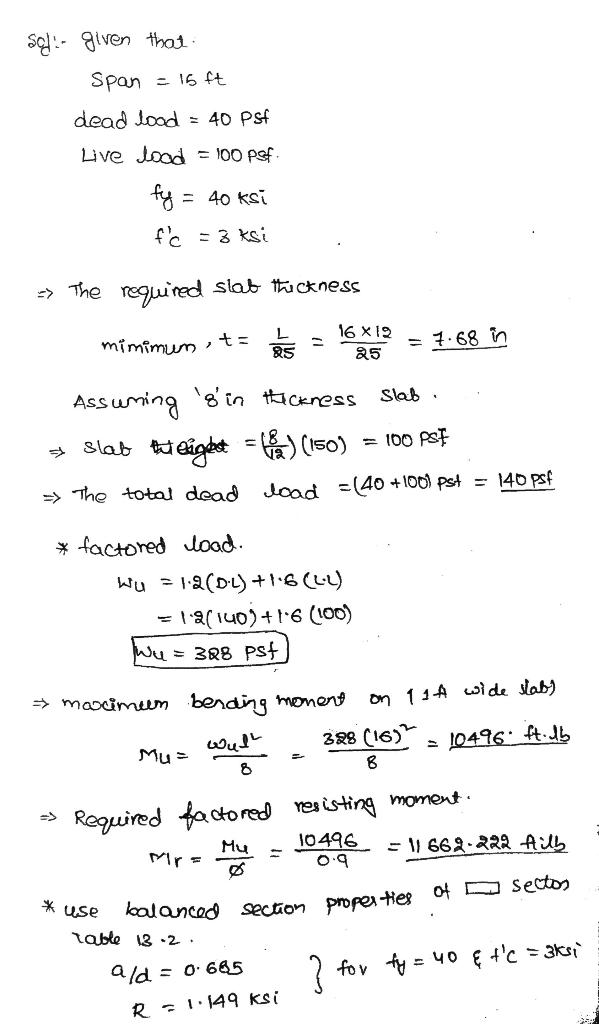 Sol:- given that.
Span = 16 ft
dead load = 40 Psf
Live load = 100 psf.
fy = 40 ksi
f'c = 3 ksi
=> The required slab thickness
mimimum, t = L/25 = 16×12/25 = 7.68 in
Assuming '8' in thickness slab.
=> slab weight = (8/12)(150) = 100 PSF
=> The total dead load = (40+100) psf = 140 psf
* factored load.
Wu = 1.2(D.L) + 1.6(L.L)
= 1.2(140) + 1.6(100)
Wu = 328 PSf
=> maximum bending moment on 1 ft wide slab)
Mu = wul²/8 = 328(16)²/8 = 10496. ft.lb
=> Required factored resisting moment.
Mr = Mu/ø = 10496/0.9 = 11662.222 ft.lb
* use balanced section properties of ▭ section
Table 13.2.
a/d = 0.685 } for fy = 40 & f'c = 3ksi
R = 1.149 ksi